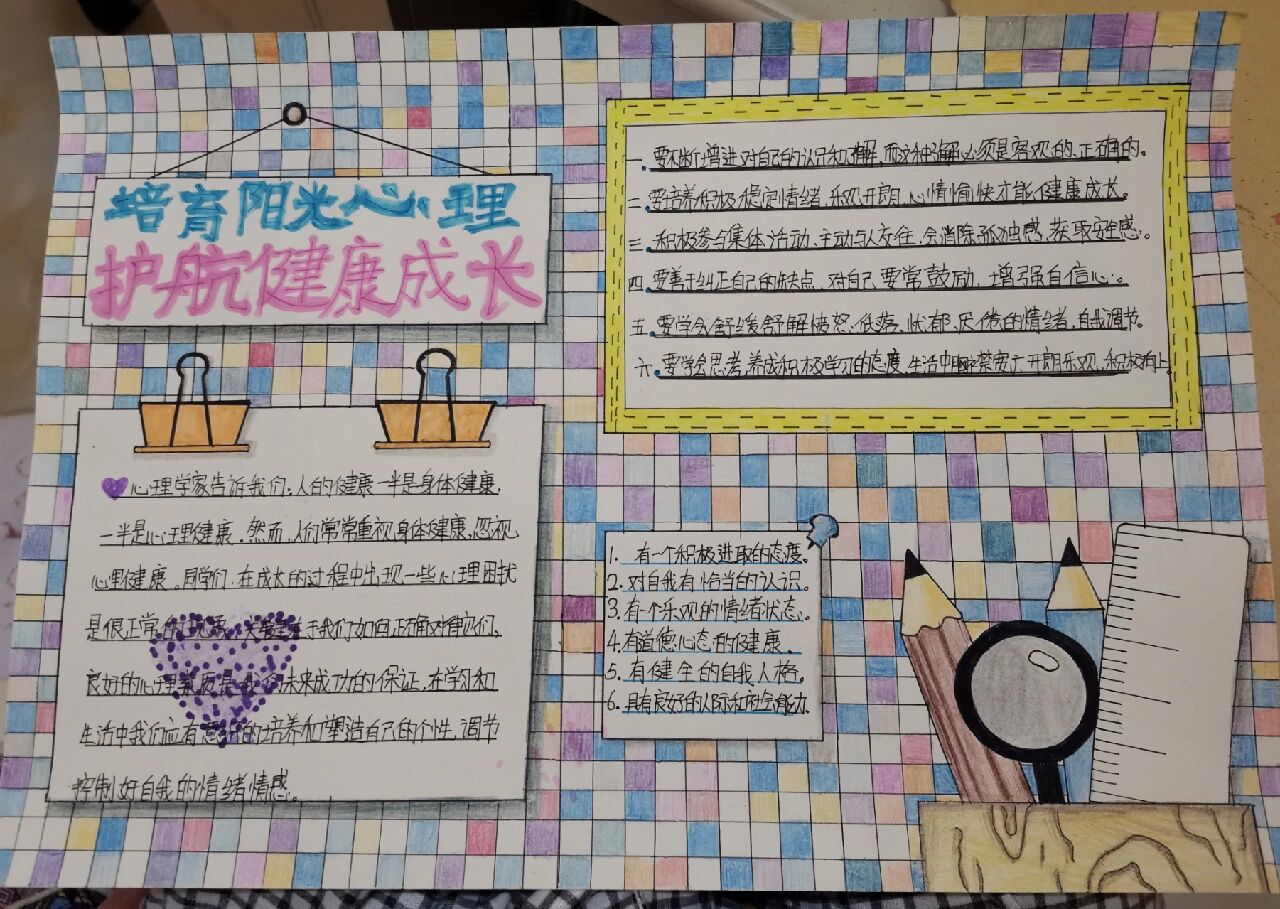 培育阳光心理
护航健康成长
心理学家告诉我们：人的健康一半是身体健康，
一半是心理健康。然而，人们常常重视身体健康，忽视
心理健康。同学们，在成长的过程中出现一些心理困扰
是很正常的现象，关键在于我们如何正确对待它们，
良好的心理素质是我们未来成功的保证，在学习和
生活中我们应有意识的培养和塑造自己的个性，调节
控制好自我的情绪情感。
一.要不断增进对自己的认识和了解，而这种了解必须是客观的、正确的。
二.要培养积极稳定情绪，乐观开朗，心情愉快才能健康成长。
三.积极参与集体活动，主动与人交往，会消除孤独感，获取安全感。
四.要善于纠正自己的缺点，对自己要常鼓励，增强自信心。
五.要学会舒缓舒解愤怒、低落、忧郁、厌倦的情绪，自我调节。
六.要学会思考，养成积极学习的态度，生活中开朗乐观，积极向上。
1. 有一个积极进取的态度。
2.对自我有恰当的认识。
3.有个乐观的情绪状态。
4.有道德心态的健康。
5.有健全的自我人格。
6.具有良好的人际和社会能力